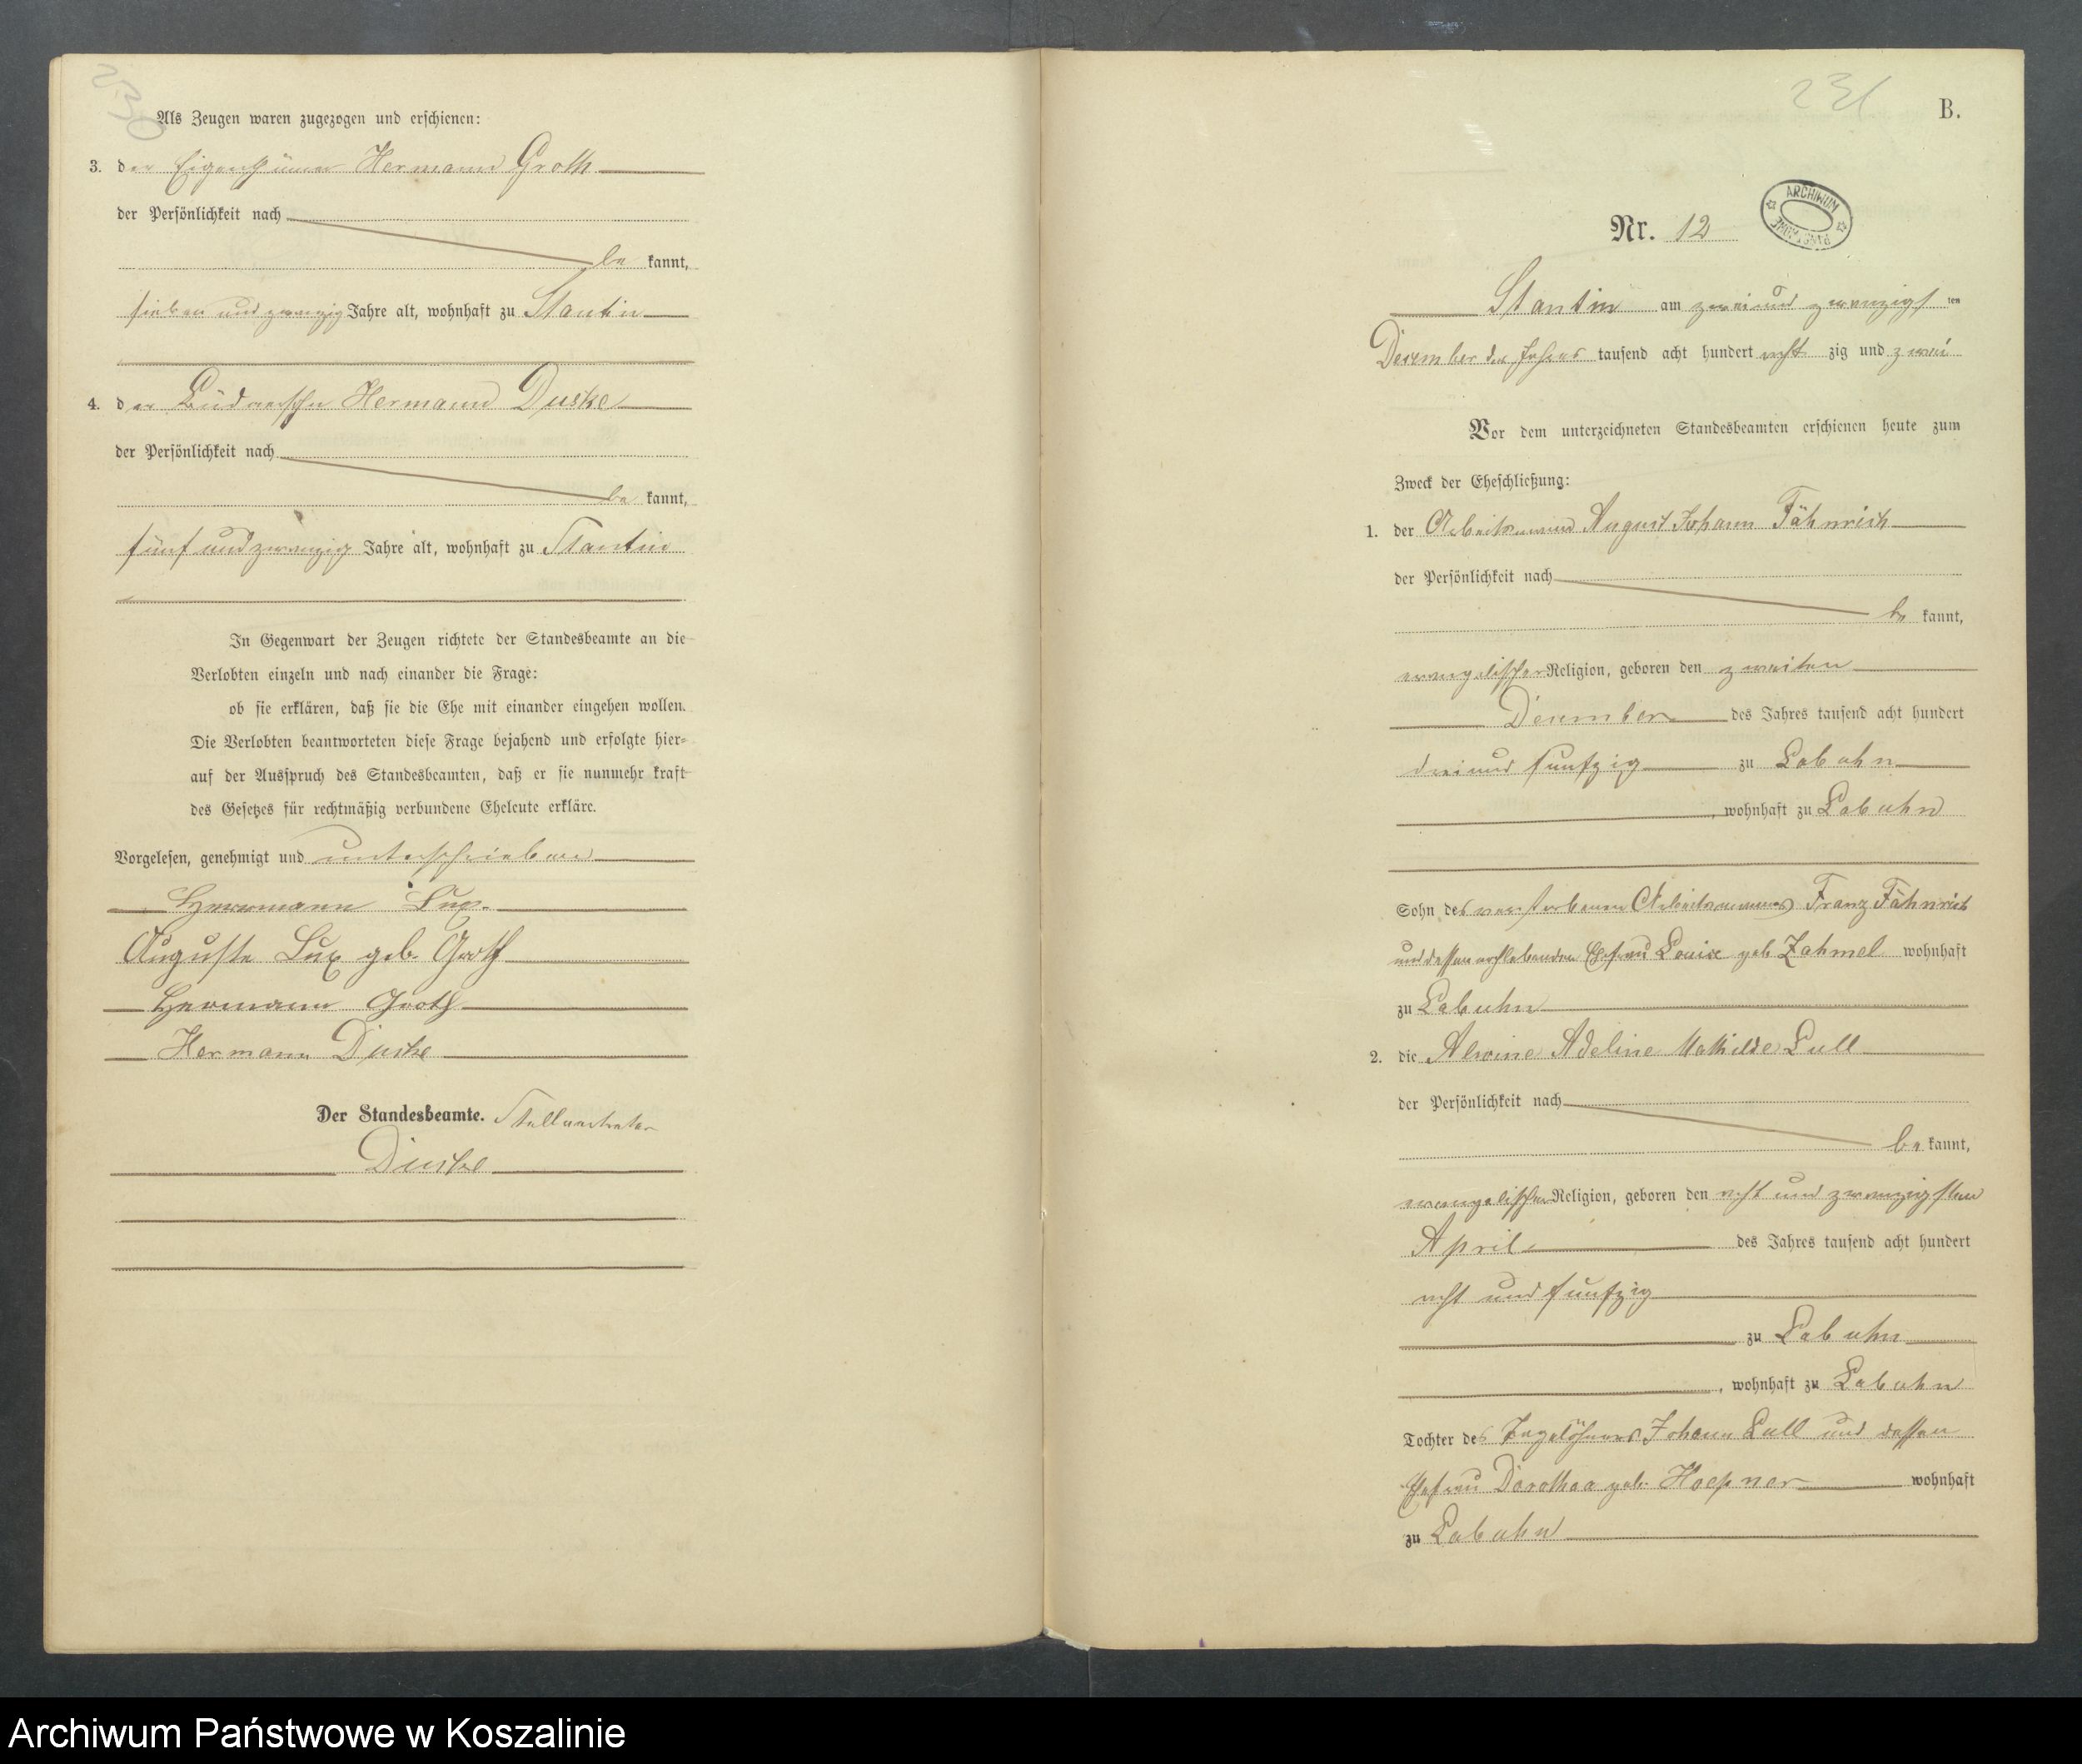 230
Als Zeugen waren zugezogen und erschienen:
3. der Eigenthümer Hermann Groth
der Persönlichkeit nach
be kannt,
sieben und zwanzig Jahre alt, wohnhaft zu Stantin
4. der Büdnersohn Hermann Duske
der Persönlichkeit nach
be kannt,
fünf und zwanzig Jahre alt, wohnhaft zu Stantin
In Gegenwart der Zeugen richtete der Standesbeamte an die
Verlobten einzeln und nach einander die Frage:
ob sie erklären, daß sie die Ehe mit einander eingehen wollen.
Die Verlobten beantworteten diese Frage bejahend und erfolgte hier-
auf der Ausspruch des Standesbeamten, daß er sie nunmehr kraft
des Gesetzes für rechtmäßig verbundene Eheleute erkläre.
Vorgelesen, genehmigt und unterschrieben
Herrmann Lux.
Auguste Lux geb. Groth
Hermann Groth
Hermann Duske
Der Standesbeamte. Stellvertreter
Duske
231
B.
Nr. 12
ARCHIWUM PAŃSTWOWE
Stantin am zwei und zwanzigsten
December des Jahres tausend acht hundert acht zig und zwei
Vor dem unterzeichneten Standesbeamten erschienen heute zum
Zweck der Eheschließung:
1. der Arbeitsmann August Johann Fähnrich
der Persönlichkeit nach
be kannt,
evangelischer Religion, geboren den zweiten
December des Jahres tausend acht hundert
drei und funfzig zu Labuhn
, wohnhaft zu Labuhn
Sohn des verstorbenen Arbeitsmannes Franz Fähnrich
und dessen nachlebenden Ehefrau Louise geb. Zahmel wohnhaft
zu Labuhn
2. die Alwine Adeline Mathilde Lull
der Persönlichkeit nach
be kannt,
evangelischer Religion, geboren den acht und zwanzigsten
April des Jahres tausend acht hundert
acht und funfzig
zu Labuhn
, wohnhaft zu Labuhn
Tochter des Tagelöhners Johann Lull und dessen
Ehefrau Dorothea geb. Hoepner wohnhaft
zu Labuhn
Archiwum Państwowe w Koszalinie